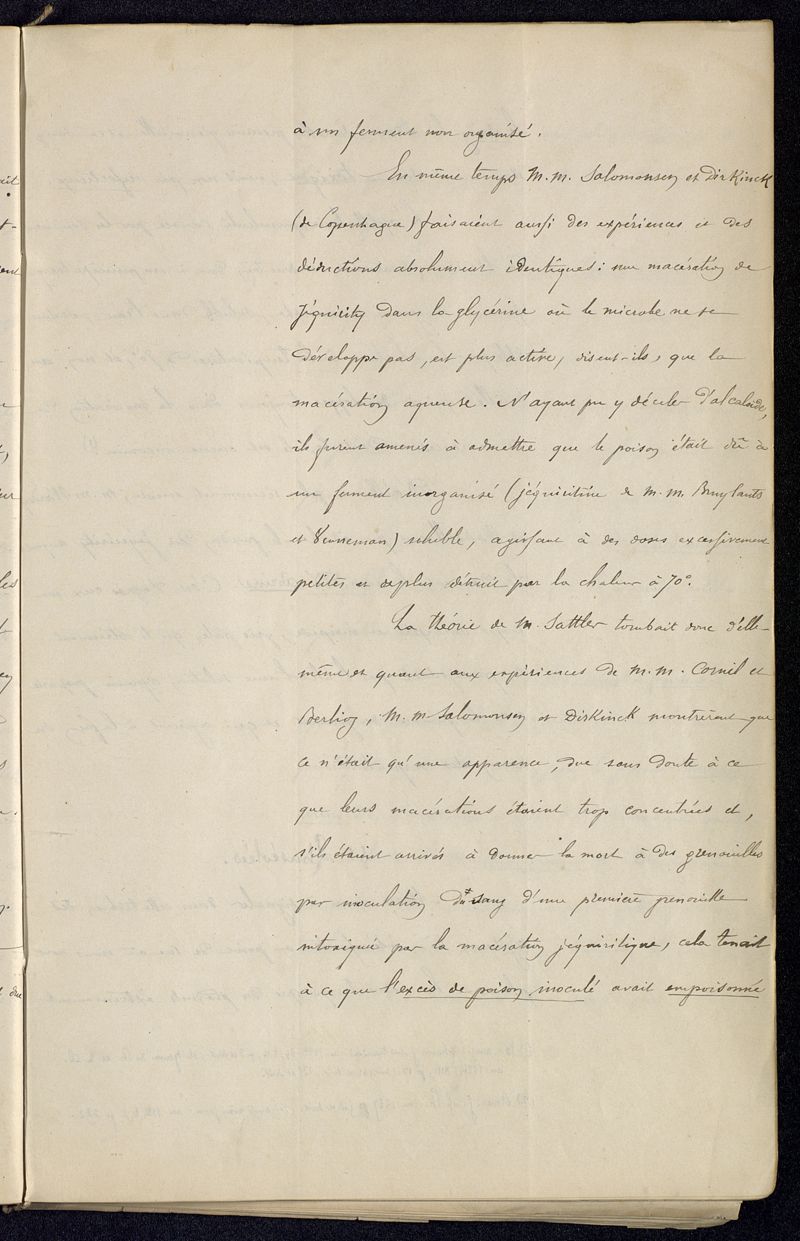 à un ferment non organisé.
En même temps M.M. Salomonsen et Dirkinck
(de Copenhague) faisaient aussi des expériences et des
déductions absolument identiques: une macération de
Jéquirity dans la glycérine où le microbe ne se
développe pas, est plus active, disent-ils, que la
macération aqueuse. N'ayant pu y déceler d'alcaloïde,
ils furent amenés à admettre que le poison était dû à
un ferment inorganisé (jéquiritine de M.M. Bruylants
et Venneman) soluble, agissant à des doses excessivement
petites et de plus détruit par la chaleur à 70°.
La théorie de M. Sattler tombait donc d'elle-
même et quant aux expériences de M.M. Cornil et
Berlioz, M.M Salomonsen et Dirkinck montrèrent que
ce n'était qu'une apparence, due sans doute à ce
que leurs macérations étaient trop concentrées et,
s'ils étaient arrivés à donner la mort à des grenouilles
par inoculation du sang d'une première grenouille
intoxiquée par la macération jéquiritique, cela tenait
à ce que l'excès de poison inoculé avait empoisonné